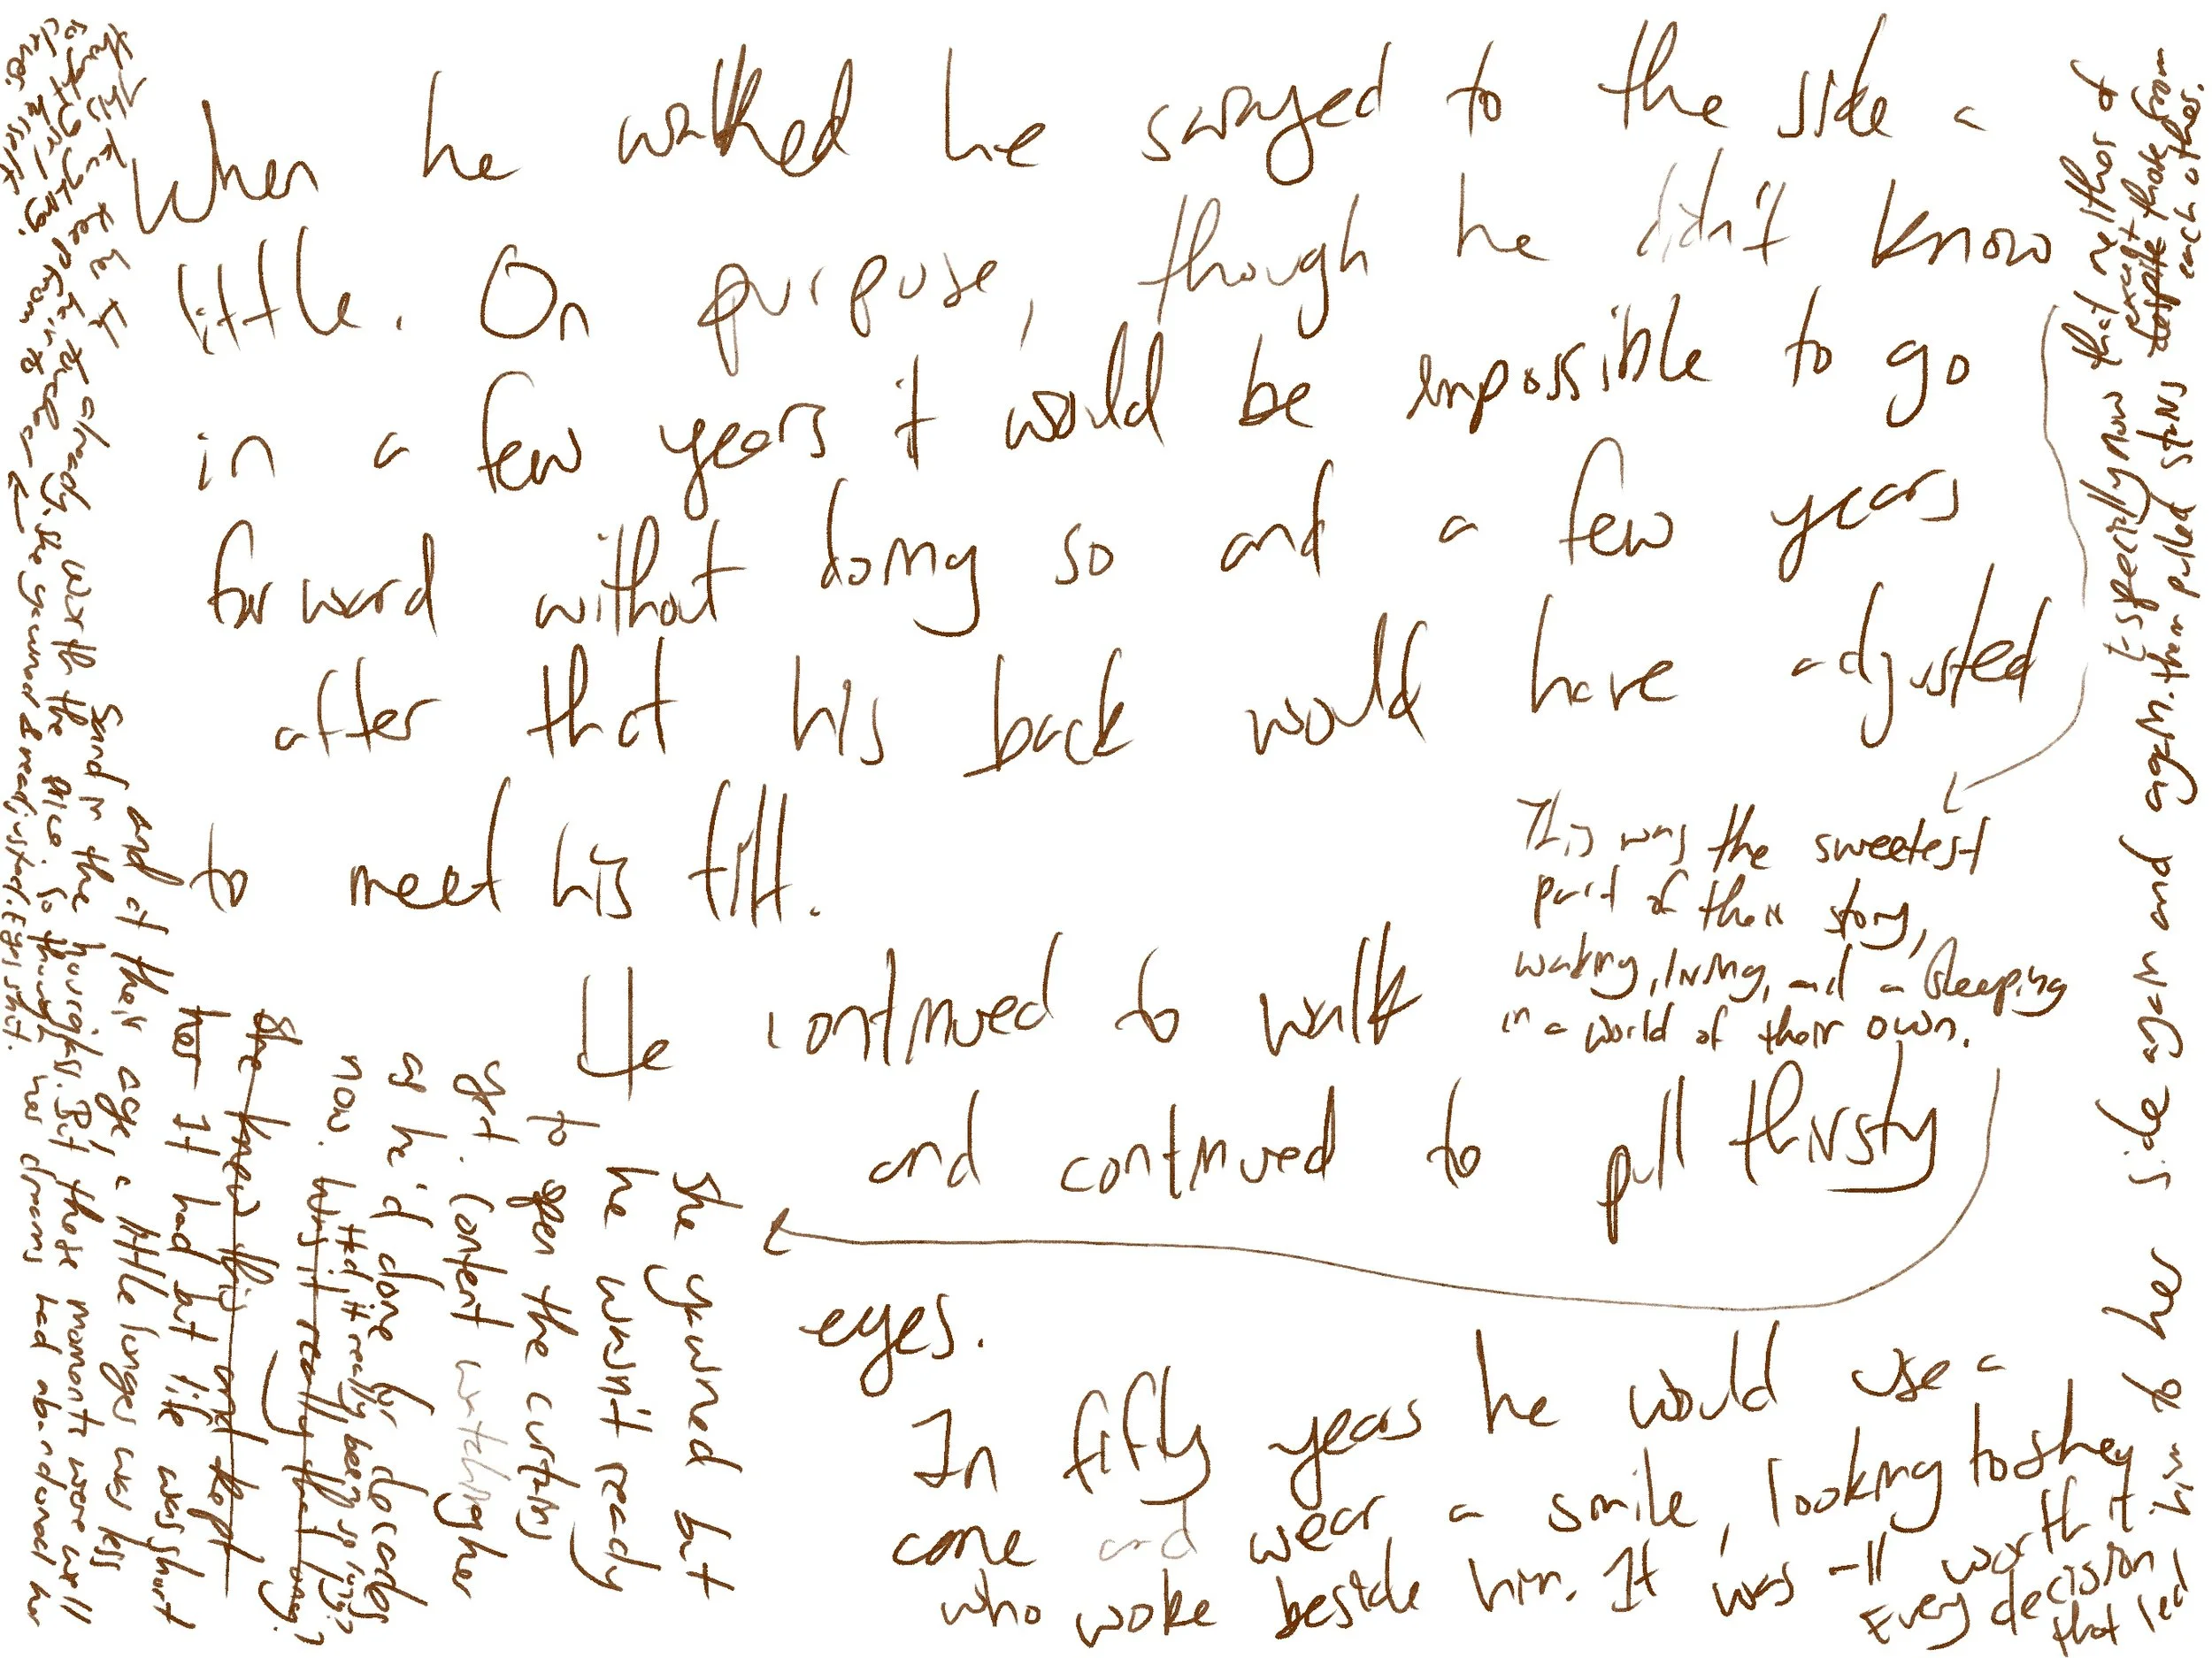 When he walked he swayed to the side a
little. On purpose, though he didn't know
in a few years it would be impossible to go
forward without doing so and a few years
after that his back would have adjusted
to meet his tilt.
He continued to walk
and continued to pull thirsty
eyes.
In fifty years he would use a
cane and wear a smile, looking to they
who woke beside him. It was all worth it
Every decision
that led
him to her side again and again. them pulled stars despite those from
each other.
especially now that neither of
except
This was the sweetest
part of their story,
waking, living, and a sleeping
in a world of their own.
She yawned but
he wasn't ready
to open the curtains
yet. Content watching her
as he'd done for decades
now. Had it really been so long?
Was it really that long?
She knew this and kept
her It had but life was short
and at their age, a little longer was less
Sand in the hourglass. But these moments were well
worth the price so though her dreams had abandoned her
already. she yawned & readjusted. Eyes shut.